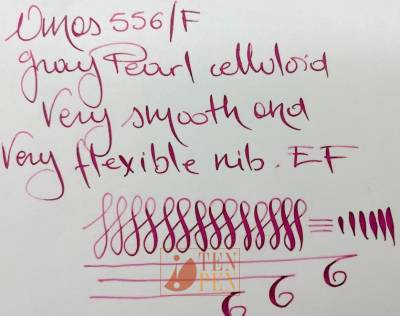 Omas 556/F
gray Pearl celluloid
Very smooth and
Very flexible nib. EF
TEN
PEN
6 6 6